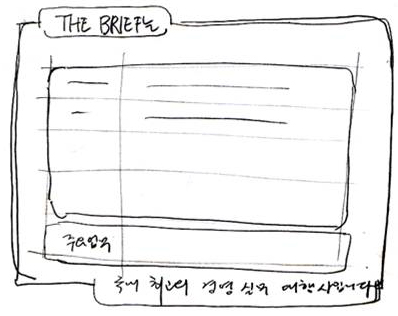 THE BRIEF는
주요업무
국내 최고의 경영 실무 여행사입니다